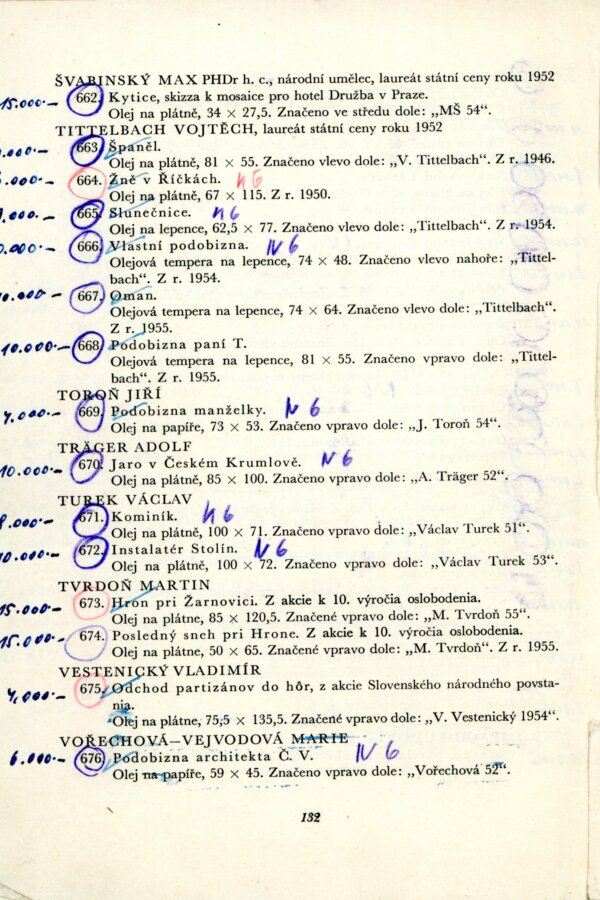 ŠVABINSKÝ MAX PHDr h. c., národní umělec, laureát státní ceny roku 1952
15.000·– 662. Kytice, skizza k mosaice pro hotel Družba v Praze.
Olej na plátně, 34 × 27,5. Značeno ve středu dole: „MŠ 54“.
TITTELBACH VOJTĚCH, laureát státní ceny roku 1952
663. Španěl.
Olej na plátně, 81 × 55. Značeno vlevo dole: „V. Tittelbach“. Z r. 1946.
664. Žně v Říčkách. N6
Olej na plátně, 67 × 115. Z r. 1950.
665. Slunečnice. N6
Olej na lepence, 62,5 × 77. Značeno vlevo dole: „Tittelbach“. Z r. 1954.
666. Vlastní podobizna. N6
Olejová tempera na lepence, 74 × 48. Značeno vlevo nahoře: „Tittel-
bach“. Z r. 1954.
667. Oman.
Olejová tempera na lepence, 74 × 64. Značeno vlevo dole: „Tittelbach“.
Z r. 1955.
10.000·– 668. Podobizna paní T.
Olejová tempera na lepence, 81 × 55. Značeno vpravo dole: „Tittel-
bach“. Z r. 1955.
TOROŇ JIŘÍ
4.000·– 669. Podobizna manželky. N6
Olej na papíře, 73 × 53. Značeno vpravo dole: „J. Toroň 54“.
TRÄGER ADOLF
10.000·– 670. Jaro v Českém Krumlově. N6
Olej na plátně, 85 × 100. Značeno vpravo dole: „A. Träger 52“.
TUREK VÁCLAV
8.000·– 671. Kominík. N6
Olej na plátně, 100 × 71. Značeno vpravo dole: „Václav Turek 51“.
10.000·– 672. Instalatér Stolín. N6
Olej na plátně, 100 × 72. Značeno vpravo dole: „Václav Turek 53“.
TVRDOŇ MARTIN
15.000·– 673. Hron pri Žarnovici. Z akcie k 10. výročia oslobodenia.
Olej na plátne, 85 × 120,5. Značené vpravo dole: „M. Tvrdoň 55“.
15.000·– 674. Posledný sneh pri Hrone. Z akcie k 10. výročia oslobodenia.
Olej na plátne, 50 × 65. Značené vpravo dole: „M. Tvrdoň“. Z r. 1955.
VESTENICKÝ VLADIMÍR
4,000·– 675. Odchod partizánov do hôr, z akcie Slovenského národného povsta-
nia.
Olej na plátne, 75,5 × 135,5. Značené vpravo dole: „V. Vestenický 1954“.
VOŘECHOVÁ—VEJVODOVÁ MARIE
6.000·– 676. Podobizna architekta Č. V. N6
Olej na papíře, 59 × 45. Značeno vpravo dole: „Vořechová 52“.
132